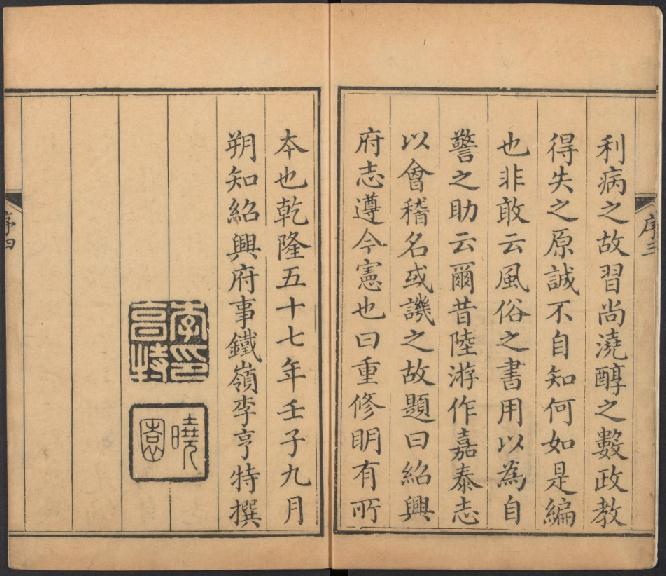 利病之故習尚澆醇之數政教
得失之原誠不自知何如是編
也非敢云風俗之書用以為自
警之助云爾昔陸游作嘉泰志
以會稽名或譏之故題曰紹興
府志遵今憲也曰重修明有所
本也乾隆五十七年壬子九月
朔知紹興府事鐵嶺李亨特撰
李亨特印
曉園
序四